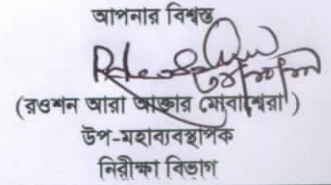 আপনার বিশ্বস্ত
(রওশন আরা আক্তার মোবাশ্বেরা)
উপ-মহাব্যবস্থাপক
নিরীক্ষা বিভাগ